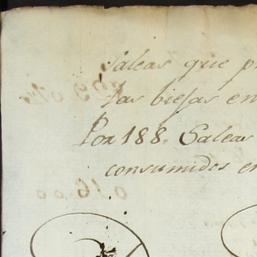 Saleas que p
las biejas en
Por 188. Saleas
consumidos en